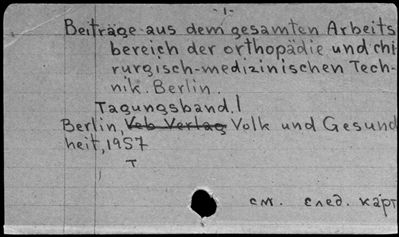 -1-
Beiträge aus dem gesamten Arbeits
bereich der orthopädie und chi
rurgisch-medizinischen Tech-
nik. Berlin.
Tagungsband. I
Berlin, Veb Verlag Volk und Gesund
heit, 1957
T
см. след. карт